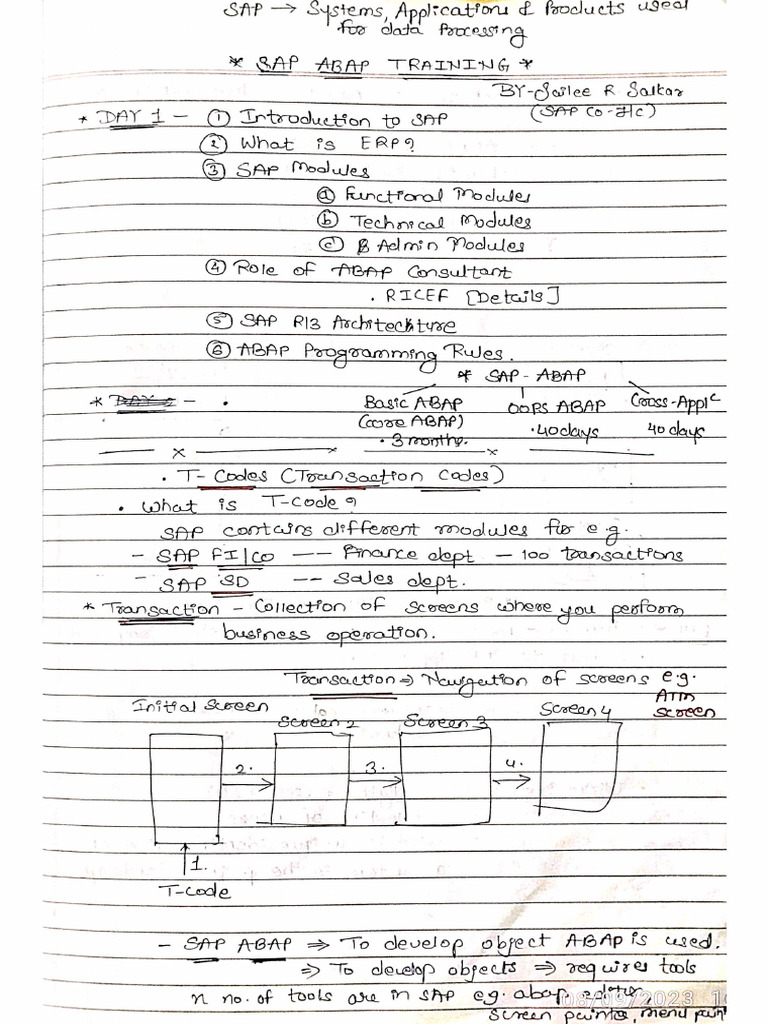 SAP → Systems, Applications & Products used
for data Processing
* SAP ABAP TRAINING *
BY-Sailee R Salkar
(SAP CO-
* DAY 1 - ① Introduction to SAP
② What is ERP?
③ SAP Modules
ⓐ Functional Modules
ⓑ Technical Modules
ⓒ Admin Modules
④ Role of ABAP Consultant
. RICEF [Details]
⑤ SAP R/3 Architechture
⑥ ABAP Programming Rules.
* SAP-ABAP
* DAY 2 - .
Basic ABAP OOPS ABAP Cross-Applc
(core ABAP) . 40 days 40 days
. 3 months.
. T-Codes (Transaction Codes)
. What is T-code?
SAP contains different modules for e.g.
- SAP FI/CO -- Finance dept - 100 transactions
- SAP SD -- Sales dept.
* Transaction - Collection of screens where you perform
business operation.
Transaction ⇒ Navigation of screens e.g.
ATM
screen
Initial Screen Screen 2 Screen 3 Screen 4
2. 3. 4.
1.
T-code
- SAP ABAP ⇒ To develop object ABAP is used.
⇒ To develop objects ⇒ requires tools
n no. of tools are in SAP e.g. abap editor
08/09/2023
screen painter, menu